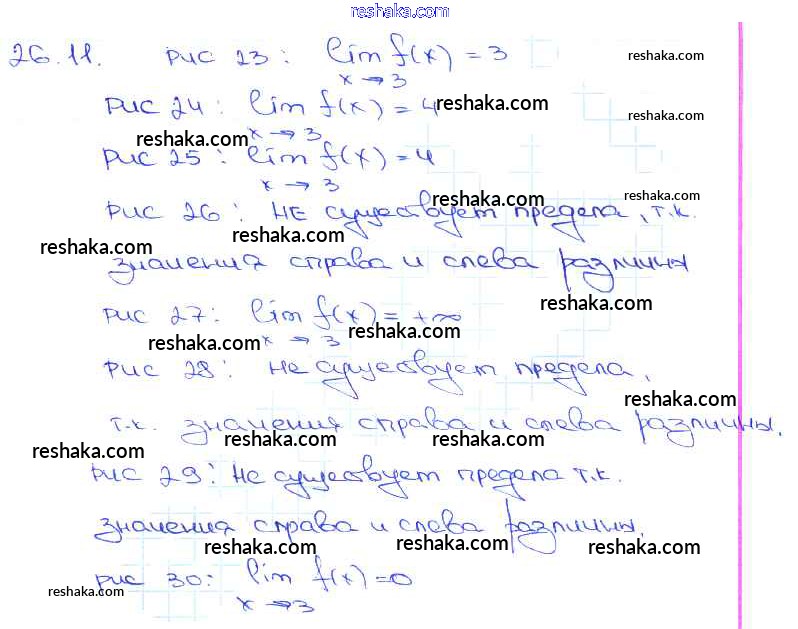 reshaka.com
26.11. рис 23: lim f(x) = 3
x → 3
reshaka.com
рис 24: lim f(x) = 4
x → 3
reshaka.com
reshaka.com
reshaka.com
рис 25: lim f(x) = 4
x → 3
рис 26: НЕ существует предела, т.к.
reshaka.com
reshaka.com
reshaka.com
reshaka.com
значения справа и слева различны
рис 27: lim f(x) = +∞
x → 3
reshaka.com
reshaka.com
reshaka.com
рис 28: Не существует предела,
reshaka.com
т.к. значения справа и слева различны.
reshaka.com
reshaka.com
reshaka.com
рис 29: Не существует предела т.к.
значения справа и слева различны.
reshaka.com
reshaka.com
reshaka.com
рис 30: lim f(x) = 0
x → 3
reshaka.com